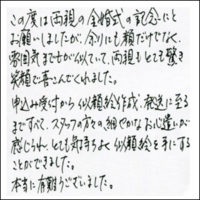 この度は両親の金婚式の記念にと
お願いしましたが、余りにも顔だけでなく、
雰囲気まで似ていて、両親もとても驚き
笑顔で喜んでくれました。
申込み受付から似顔絵作成、発送に至る
まですべて、スタッフの方々の細やかなお心遣いが
感じられ、とても気持ちよく似顔絵を手にする
ことができました。
本当に有難うございました。